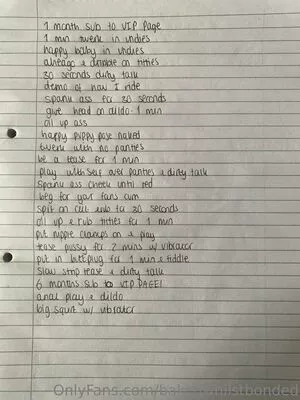 1 month sub to VIP Page
1 min twerk in undies
happy baby in undies
ahegao & dribble on titties
30 seconds dirty talk
demo of how I ride
spank ass for 30 seconds
give head on dildo 1 min
oil up ass
happy puppy pose naked
twerk with no panties
be a tease for 1 min
play with self over panties & dirty talk
spank ass cheek until red
beg for your fans cum
spit on clit & rub for 30 seconds
oil up & rub titties for 1 min
put nipple clamps on & play
tease pussy for 2 mins w/ vibrator
put in buttplug for 1 min & fiddle
slow strip tease & dirty talk
6 months sub to VIP PAGE!
anal play & dildo
big squirt w/ vibrator